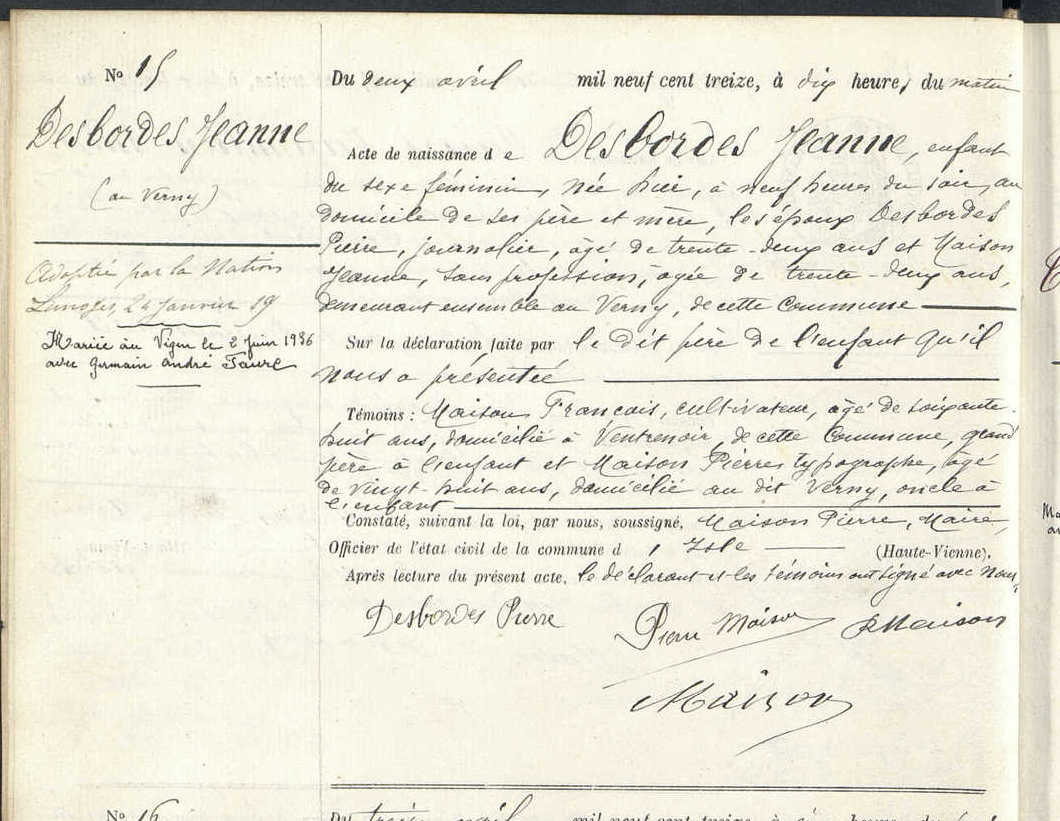 N° 15
Desbordes Jeanne
(au Verny)
Adoptée par la Nation
Limoges, 24 Janvier 19
Mariée au Vigen le 2 Juin 1936
avec Germain André Faure
Du deux avril mil neuf cent treize, à dix heures du matin
Acte de naissance de Desbordes Jeanne, enfant
du sexe féminin, née hier, à neuf heures du soir, au
domicile de ses père et mère, les époux Desbordes
Pierre, journalier, âgé de trente-deux ans et Maison
Jeanne, sans profession, agée de trente-deux ans,
demeurant ensemble au Verny, de cette Commune
Sur la déclaration faite par le dit père de l'enfant qu'il
nous a présentée
Témoins : Maison Francois, cultivateur, âgé de soixante-
huit ans, domicilié à Ventrenoir, de cette Commune, grand
père à l'enfant et Maison Pierre, typographe, âgé
de vingt-huit ans, domicilié au dit Verny, oncle à
l'enfant
Constaté, suivant la loi, par nous, soussigné, Maison Pierre, Maire,
Officier de l'état civil de la commune d'Isle (Haute-Vienne).
Après lecture du présent acte, le déclarant et les témoins ont signé avec Nous,
Desbordes Pierre Pierre Maison P Maison
Maison
N° 16
Du trois avril mil neuf cent treize, à heures du